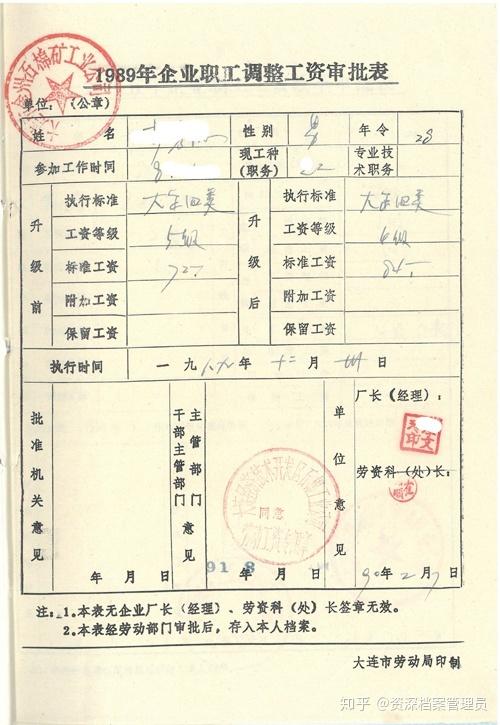 1989年企业职工调整工资审批表
单位:(公章)
姓名 性别 男 年令 28
参加工作时间 现工种(职务) 专业技术职务
升级前 执行标准 大年四类 升级后 执行标准 大年四类
工资等级 5级 工资等级 6级
标准工资 72 标准工资 84
附加工资 附加工资
保留工资 保留工资
执行时间 一九八九年十二月卅日
批准机关意见 主管部门干部主管部门意见 单位意见
厂长(经理):
劳资科(处)长:
同意
年 月 日 91 8 年 月 日 90年2月7日
注:1.本表无企业厂长(经理)、劳资科(处)长签章无效。
2.本表经劳动部门审批后,存入本人档案。
大连市劳动局印制
知乎 @资深档案管理员